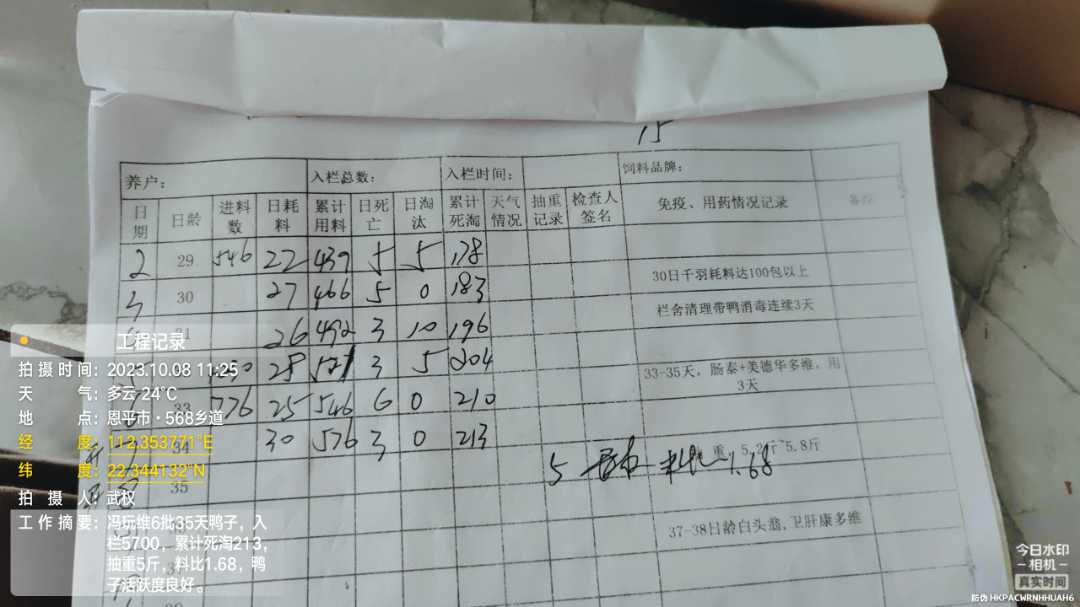 15
养户： 入栏总数： 入栏时间： 饲料品牌：
日期 日龄 进料数 日耗料 累计用料 日死亡 日淘汰 累计死淘 天气情况 抽重记录 检查人签名 免疫、用药情况记录 备注
2 29 546 22 439 5 5 178
30日千羽耗料达100包以上
3 30 27 466 5 0 183
栏舍清理带鸭消毒连续3天
26 492 3 10 196
28 3 5 204
33-35天，肠泰+美德华多维，用3天
776 25 546 6 0 210
34 30 576 3 0 213
重 5.2斤~5.8斤
5 料比 1.68
35
37-38日龄白头翁,卫肝康多维
工程记录
拍摄时间：2023.10.08 11:25
天 气：多云 24°C
地 点：恩平市·568乡道
经 度：112.353771°E
纬 度：22.344132°N
拍 摄 人：武权
工作摘要：冯玩维6批35天鸭子，入
栏5700，累计死淘213，
抽重5斤，料比1.68，鸭
子活跃度良好。
今日水印
-相机-
真实时间
防伪 HKPACWRNHHUAH6